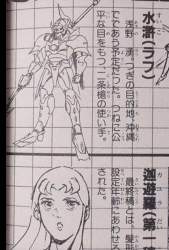 水滸(ラフ)
浅野
つぎの目的地・沖縄
でであう予定だった。つねに公
平な目をもつ、二条槍の使い手。
迦遊羅(第
最終稿とは、髪
設定年齢にあわせ
された。